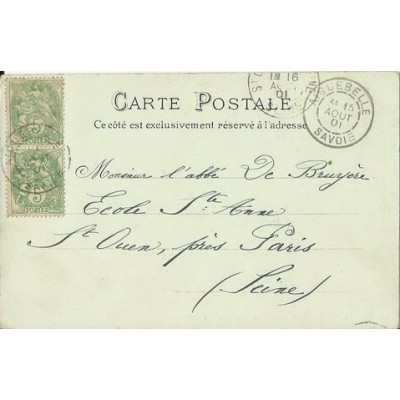 CARTE POSTALE
Ce côté est exclusivement réservé à l'adresse
AIGUEBELLE
15
AOUT
01
SAVOIE
16
01
5
POSTES
5
Monsieur l'abbé De Bruyère
Ecole Ste Anne
St Ouen, près Paris
(Seine)